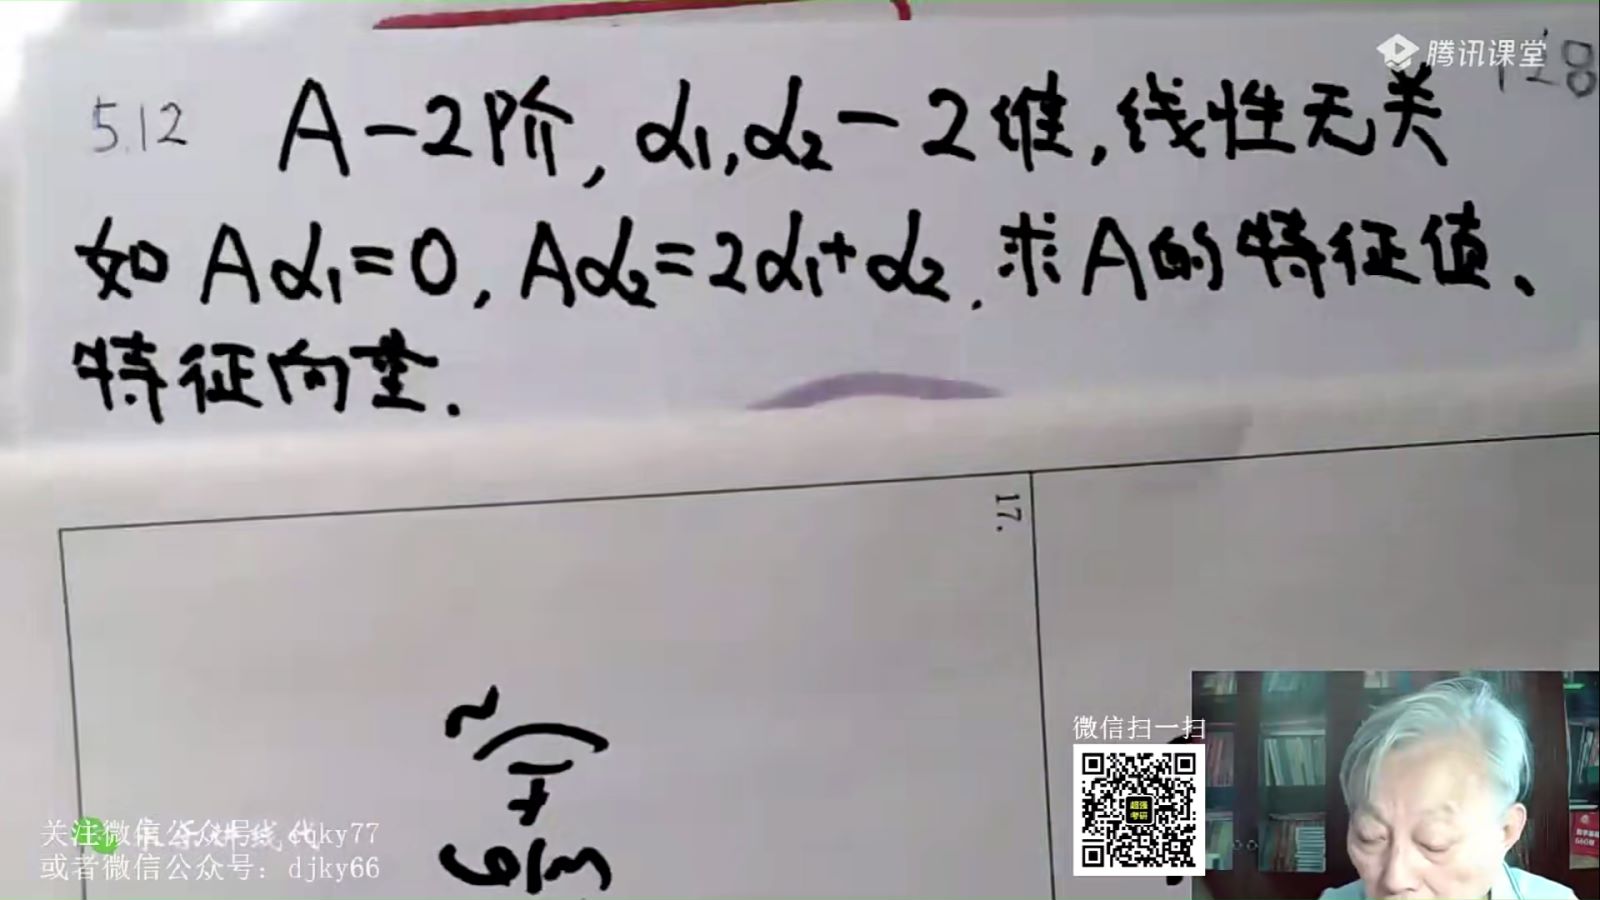 腾讯课堂
128
5.12 A-2阶, α₁,α₂-2维,线性无关
如 Aα₁=0, Aα₂=2α₁+α₂. 求A的特征值、
特征向量.
17.
微信扫一扫
超强
考研
关注微信公众号: cqky77
或者微信公众号: djky66